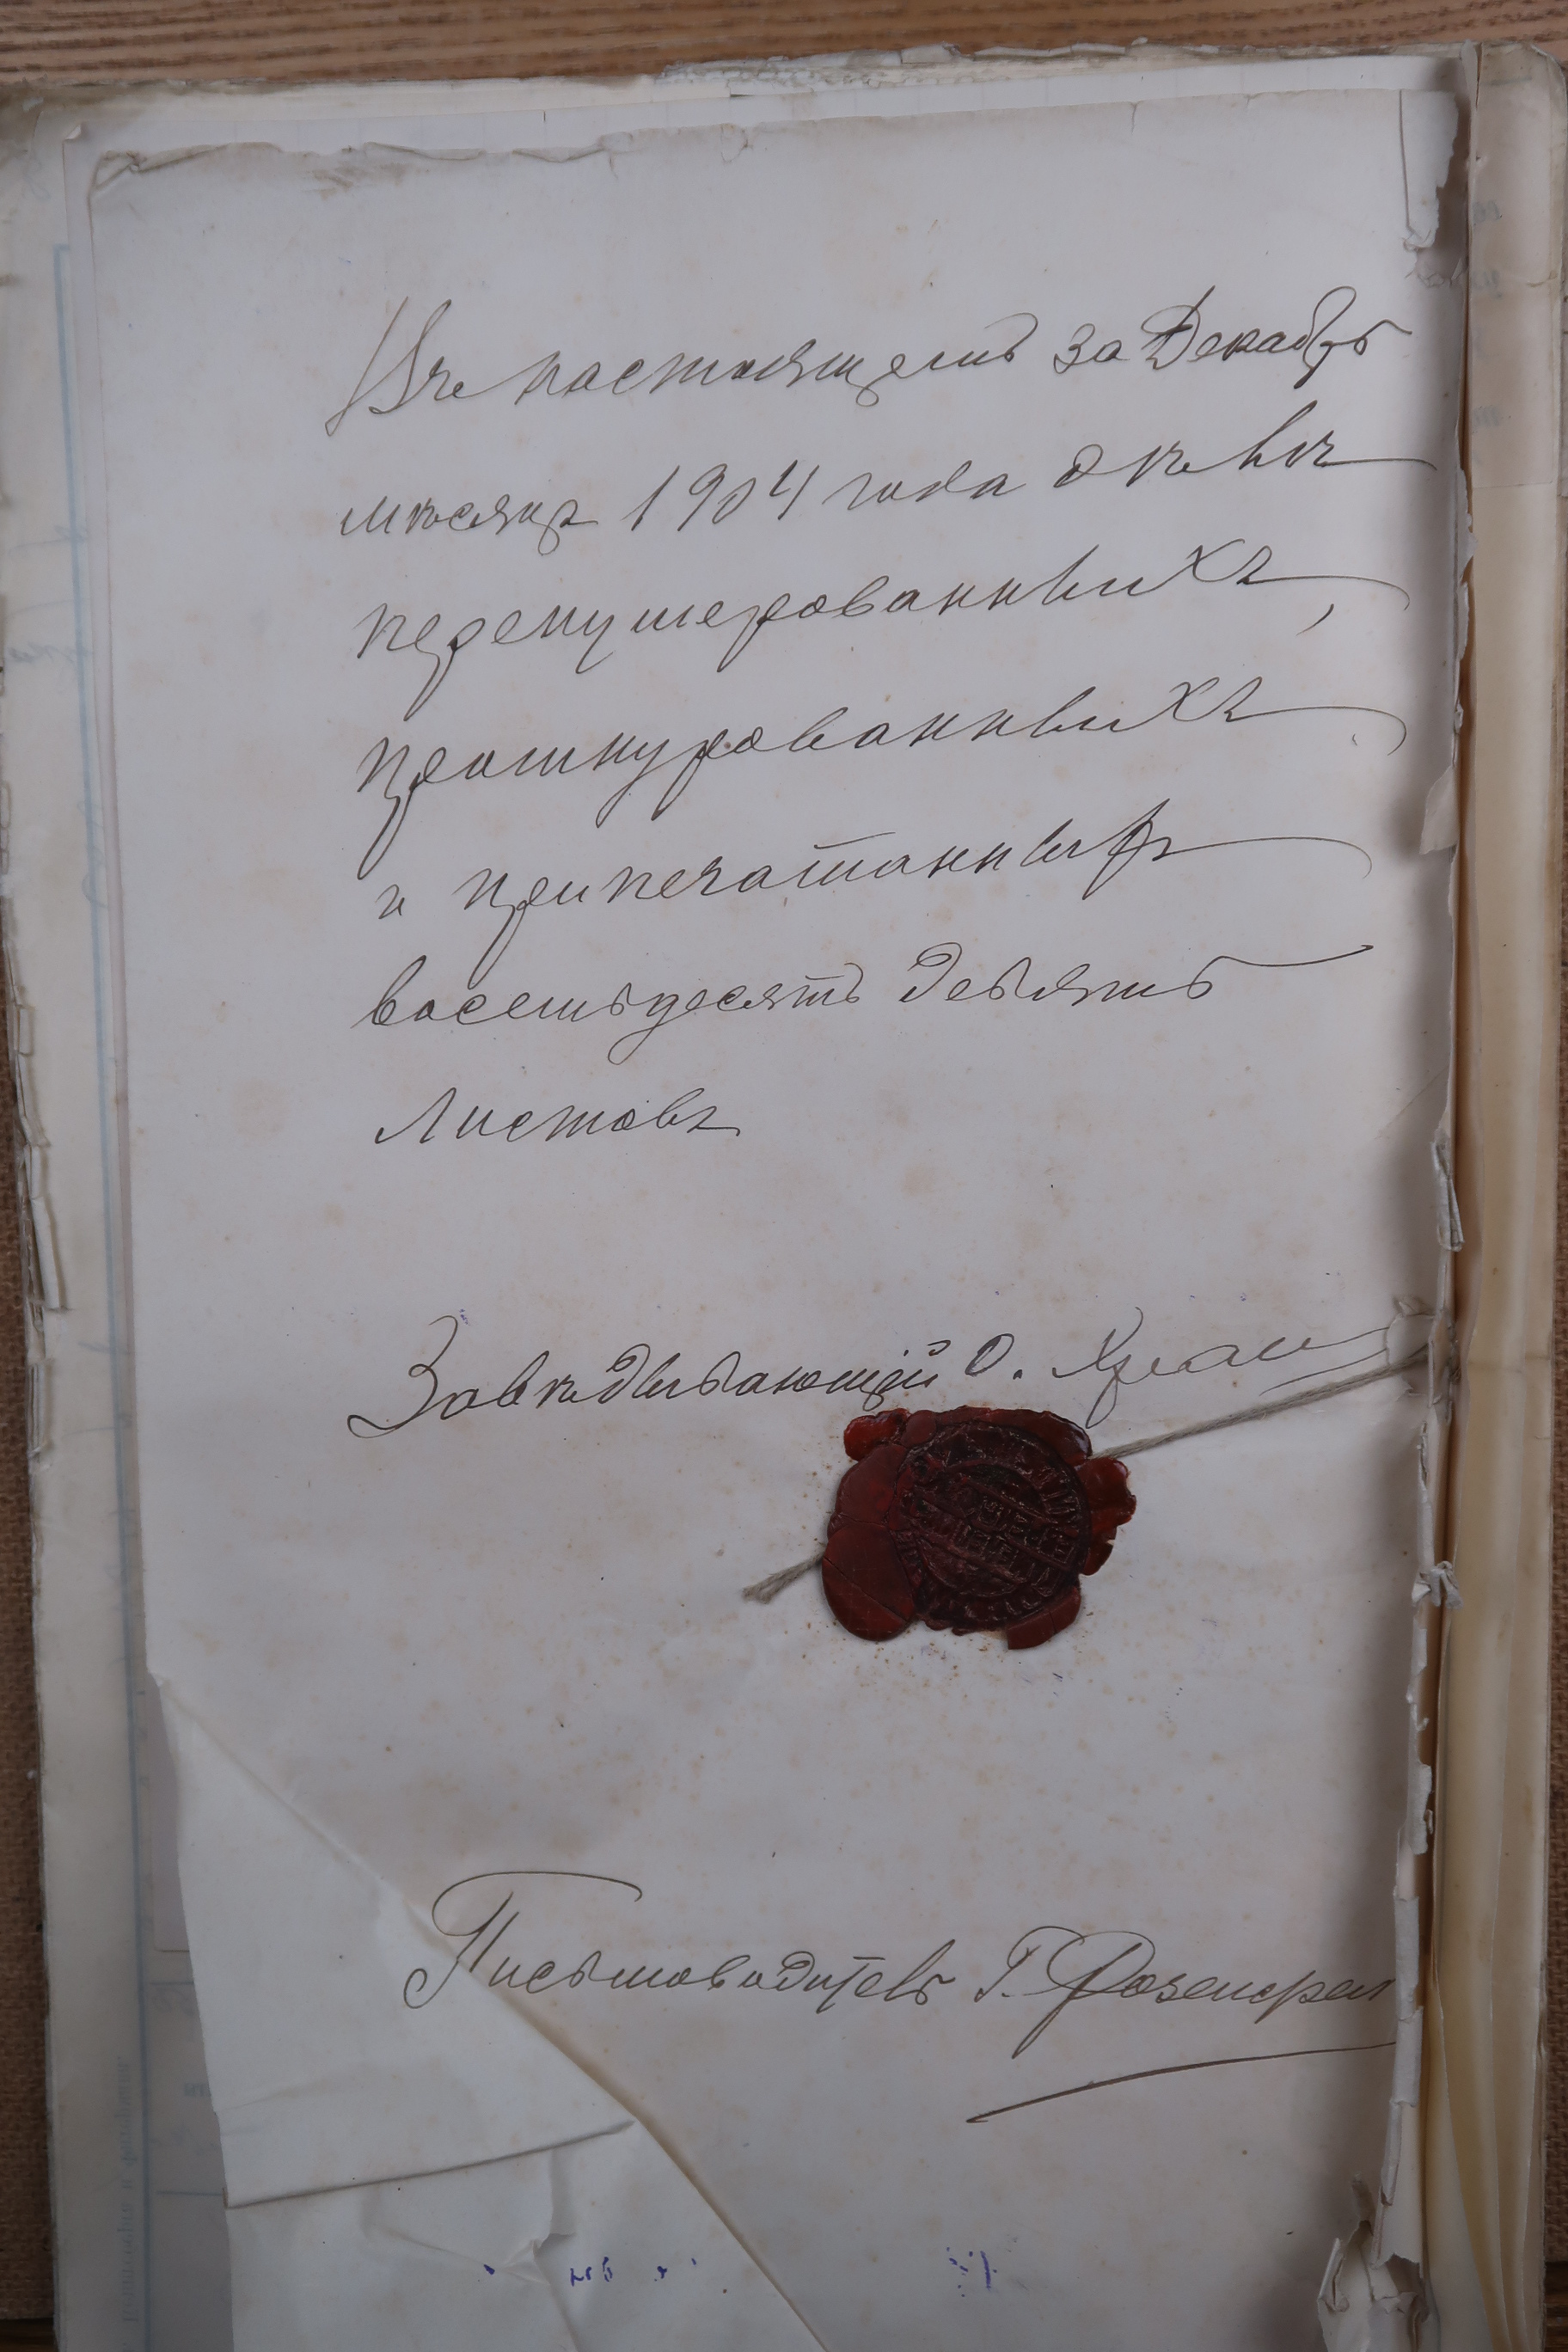 Въ настоящемъ за Декабрь
мѣсяцъ 1904 года дѣлѣ
перенумерованныхъ,
прошнурованныхъ
и припечатанныхъ
восемьдесятъ девять
листовъ
Завѣдывающій О.
Письмоводитель Г.